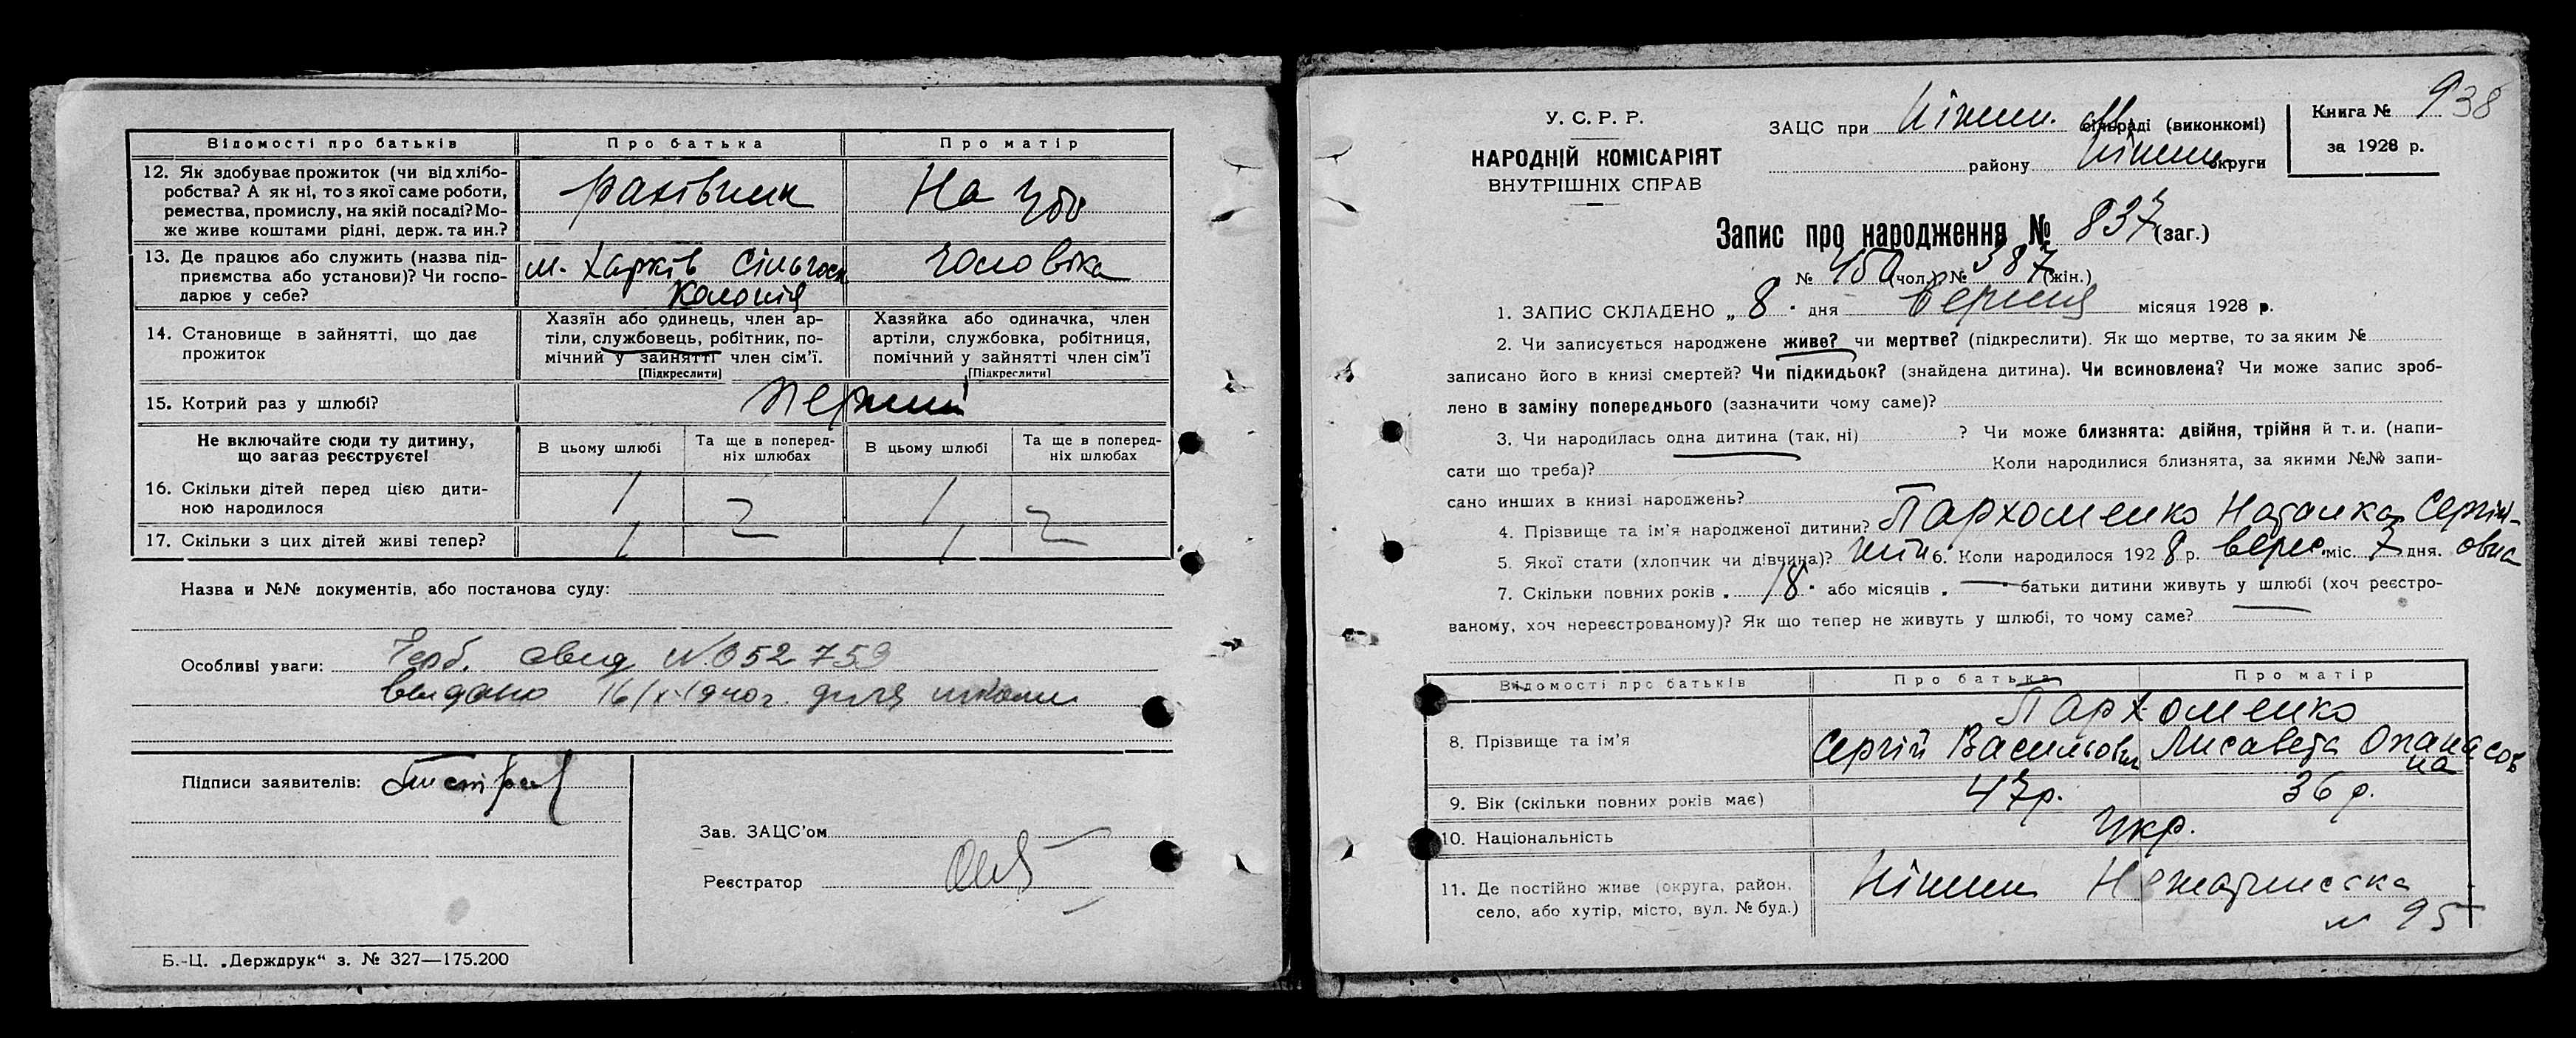 Відомості про батьків
Про батька
Про матір
12. Як здобуває прожиток (чи від хлібо-
робства? А як ні, то з якої саме роботи,
ремества, промислу, на якій посаді? Мо-
же живе коштами рідні, держ. та ин.?
рахівник
На утр
13. Де працює або служить (назва під-
приємства або установи)? Чи госпо-
дарює у себе?
м. Харків Сільгосп
колонія
чоловіка
14. Становище в зайнятті, що дає
прожиток
Хазяїн або одинець, член ар-
тіли, службовець, робітник, по-
мічний у зайнятті член сім'ї.
[Підкреслити]
Хазяйка або одиначка, член
артіли, службовка, робітниця,
помічний у зайнятті член сім'ї
[Підкреслити]
15. Котрий раз у шлюбі?
перший
Не включайте сюди ту дитину,
що загаз реєструєте!
В цьому шлюбі
Та ще в поперед-
ніх шлюбах
В цьому шлюбі
Та ще в поперед-
ніх шлюбах
16. Скільки дітей перед цією дити-
ною народилося
1
1
17. Скільки з цих дітей живі тепер?
1
1
Назва и №№ документів, або постанова суду:
Особливі уваги: Герб. свид № 052759
видано 16/X-1940г. для школи
Підписи заявителів:
Зав. ЗАЦС'ом
Реєстратор
Б.-Ц. „Держдрук“ з. № 327—175.200
У. С. Р. Р.
НАРОДНІЙ КОМІСАРІЯТ
ВНУТРІШНІХ СПРАВ
ЗАЦС при Ніжин. сільраді (виконкомі)
району Ніжин. округи
Книга № 938
за 1928 р.
Запис про народження № 837 (заг.)
№ 450 (чол.) № 387 (жін.)
1. ЗАПИС СКЛАДЕНО „ 8 " дня вересня місяця 1928 р.
2. Чи записується народжене живе? чи мертве? (підкреслити). Як що мертве, то за яким №
записано його в книзі смертей? Чи підкидьок? (знайдена дитина). Чи всиновлена? Чи може запис зроб-
лено в заміну попереднього (зазначити чому саме)?
3. Чи народилась одна дитина (так, ні) ? Чи може близнята: двійня, трійня й т. и. (напи-
сати що треба)? Коли народилися близнята, за якими №№ запи-
сано инших в книзі народжень?
4. Прізвище та ім'я народженої дитини? Пархоменко Наталка Сергіі-
овна
5. Якої стати (хлопчик чи дівчина)? жін 6. Коли народилося 1928 р. верес. міс. 7 дня.
7. Скільки повних років „ 18 " або місяців „ — " батьки дитини живуть у шлюбі (хоч реєстро-
ваному, хоч нереєстрованому)? Як що тепер не живуть у шлюбі, то чому саме?
Відомості про батьків
Про батька
Про матір
8. Прізвище та ім'я
Пархоменко
Сергій Васильови
Лисавета Опанасов
на
9. Вік (скільки повних років має)
47р.
36 р.
10. Національність
Укр.
11. Де постійно живе (округа, район,
село, або хутір, місто, вул. № буд.)
Ніжин
№ 95